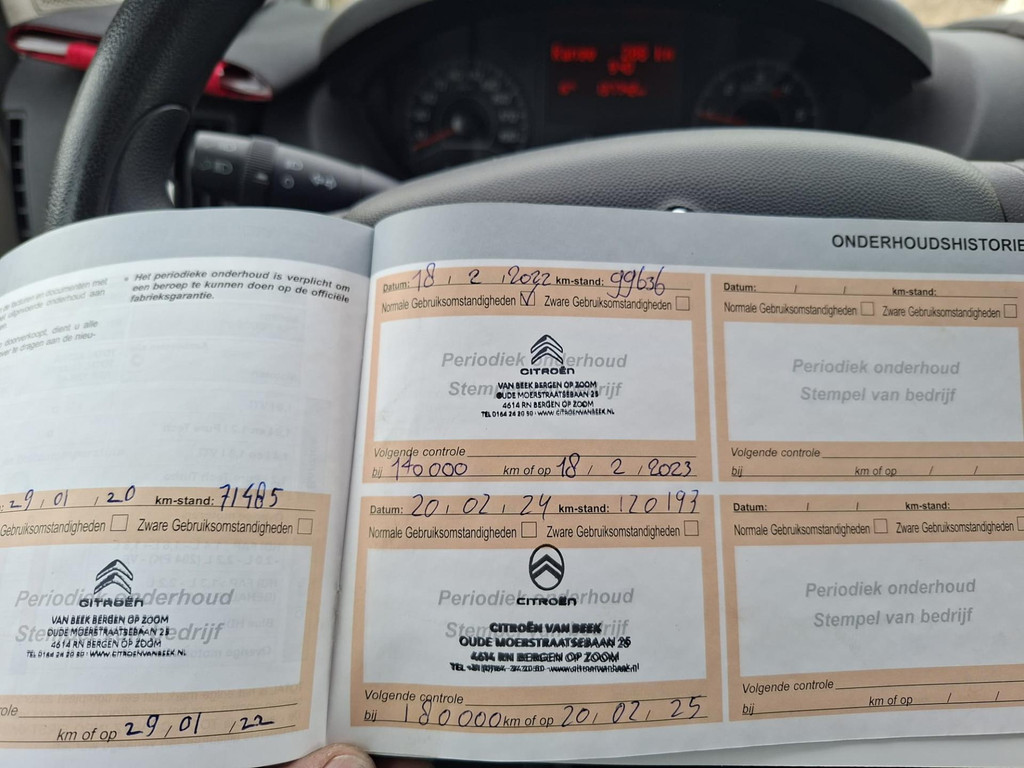 km
ONDERHOUDSHISTORIE
• Het periodieke onderhoud is verplicht om
een beroep te kunnen doen op de officiële
fabrieksgarantie.
documenten met
onderhoud aan
doorverkoopt, dient u alle
over te dragen aan de nieu-
29, 01, 20 km-stand: 71485
Gebruiksomstandigheden Zware Gebruiksomstandigheden
Periodiek onderhoud
CITROËN
VAN BEEK BERGEN OP ZOOM
OUDE MOERSTRAATSEBAAN 25
4614 RN BERGEN OP ZOOM
WWW.CITROENVANBEEK.NL
km of op 29, 01, 22
Datum: 18, 2, 2022 km-stand: 99636
Normale Gebruiksomstandigheden Zware Gebruiksomstandigheden
Periodiek onderhoud
CITROËN
Stempel van bedrijf
VAN BEEK BERGEN OP ZOOM
OUDE MOERSTRAATSEBAAN 25
4614 RN BERGEN OP ZOOM
WWW.CITROENVANBEEK.NL
Volgende controle
bij 140000 km of op 18, 2, 2023
Datum: 20, 02, 24 km-stand: 120193
Normale Gebruiksomstandigheden Zware Gebruiksomstandigheden
Periodiek onderhoud
CITROËN
Stempel van bedrijf
CITROËN VAN BEEK
OUDE MOERSTRAATSEBAAN 25
4614 RN BERGEN OP ZOOM
Volgende controle
bij 180000 km of op 20, 02, 25
Datum: / / km-stand:
Normale Gebruiksomstandigheden Zware Gebruiksomstandigheden
Periodiek onderhoud
Stempel van bedrijf
Volgende controle
bij km of op / /
Datum: / / km-stand:
Normale Gebruiksomstandigheden Zware
Periodiek onderhoud
Stempel van bedrijf
Volgende controle
bij km of op / /